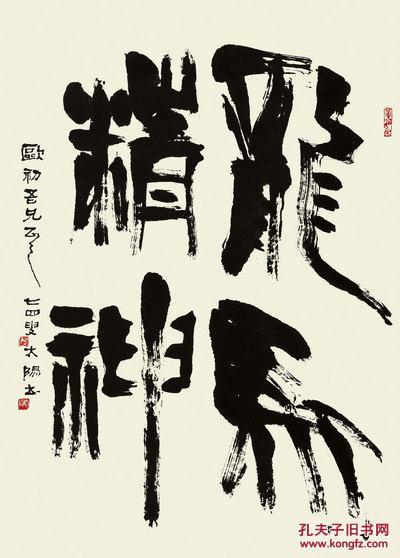 龍馬
精神
歐初吾兄正之
七四叟太陽書
孔夫子旧书网
kongfz.com